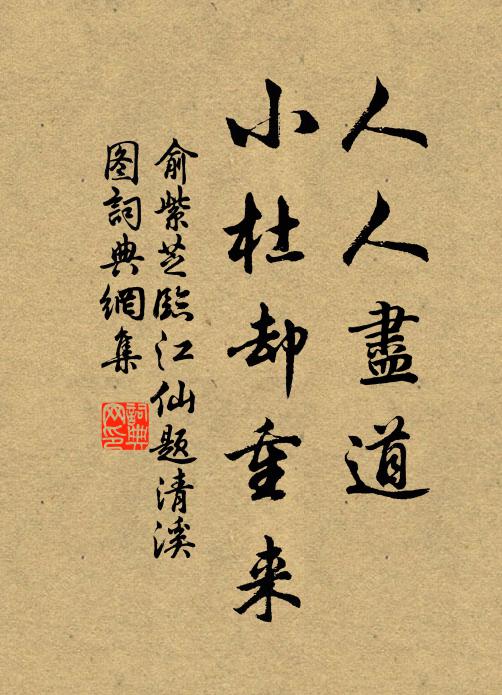 人人盡道
小杜却重来
俞紫芝臨江仙题清溪
图詞典網集
詞典网印